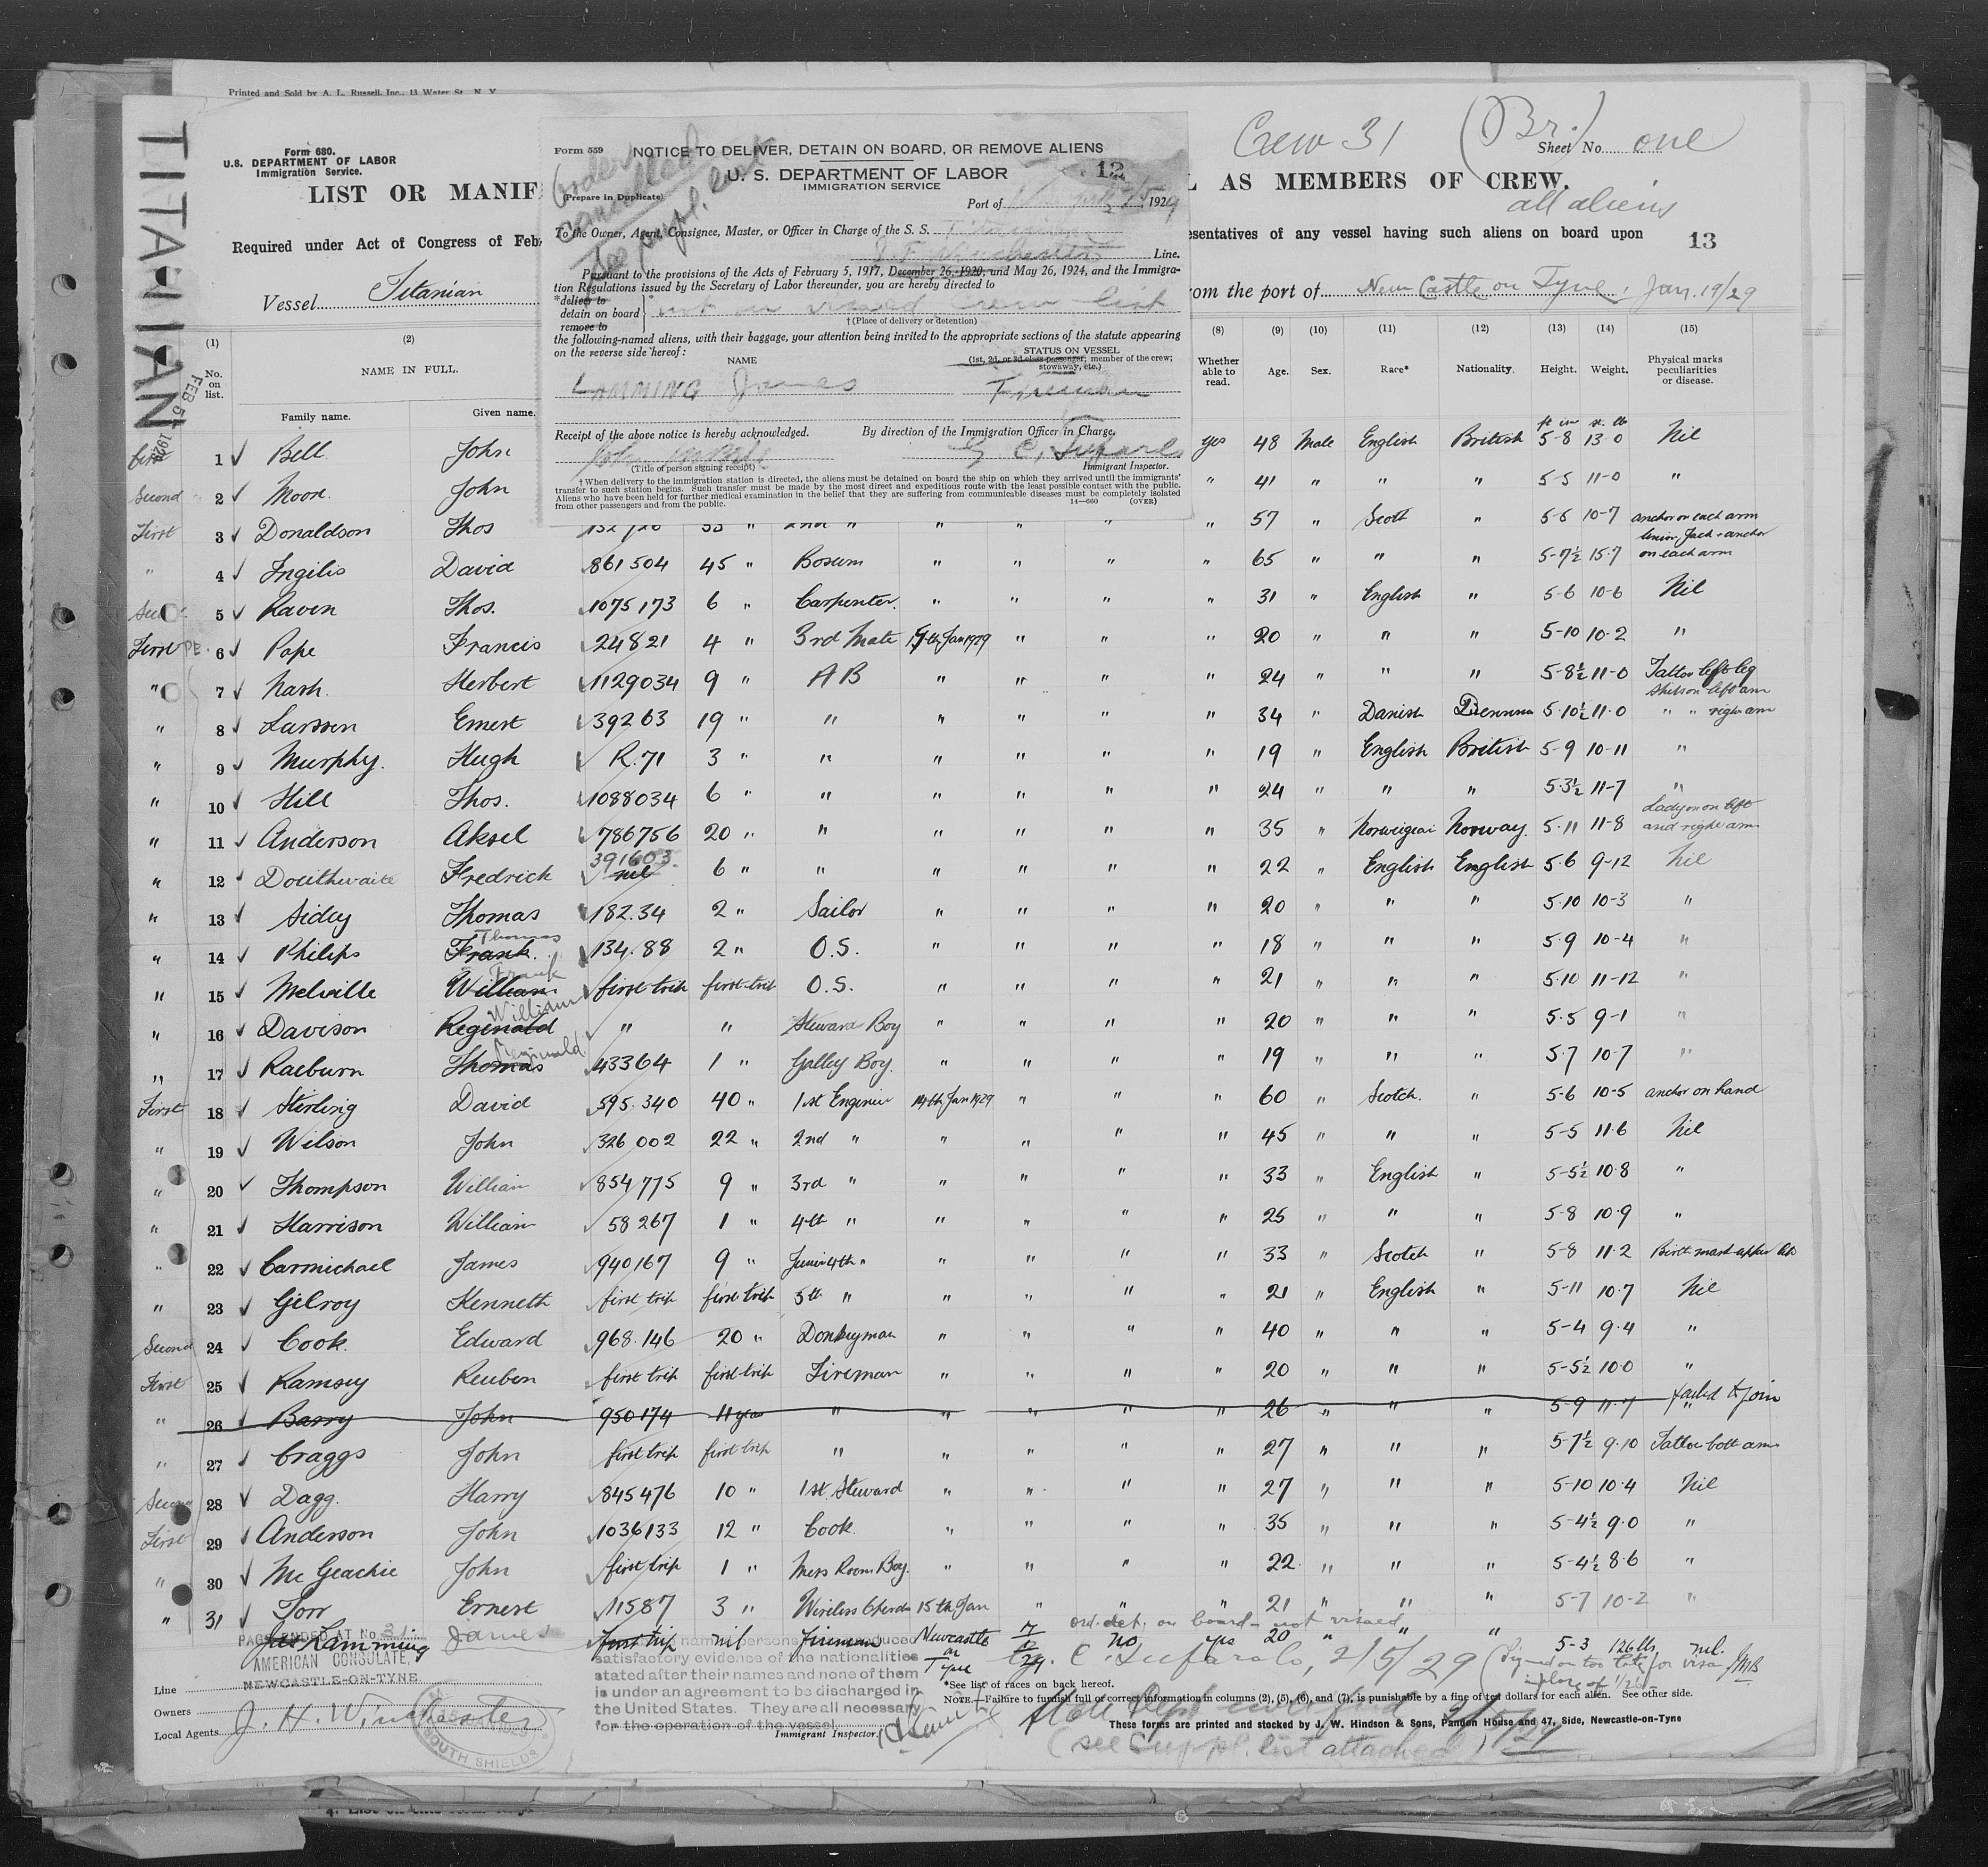 Printed and Sold by A. L. Russell, Inc., 13 Water St., N. Y.
TITANIAN
FEB 5 1929
Form 680.
U.S. DEPARTMENT OF LABOR
Immigration Service.
LIST OR MANIF
L AS MEMBERS OF CREW.
Crew 31 (Br.) Sheet No. one
all aliens
Required under Act of Congress of Feb
esentatives of any vessel having such aliens on board upon
13
Vessel Titanian
om the port of New Castle on Tyne, Jan. 19/29
Form 559
NOTICE TO DELIVER, DETAIN ON BOARD, OR REMOVE ALIENS
12
U. S. DEPARTMENT OF LABOR
IMMIGRATION SERVICE
(Prepare in Duplicate)
Order cancelled
See suppl. list
Port of 1929
To the Owner, Agent, Consignee, Master, or Officer in Charge of the S. S. Titanian
Line.
Pursuant to the provisions of the Acts of February 5, 1917, December 26, 1920, and May 26, 1924, and the Immigra-
tion Regulations issued by the Secretary of Labor thereunder, you are hereby directed to
*deliver to
detain on board
remove to
not on visaed crew list
†(Place of delivery or detention)
the following-named aliens, with their baggage, your attention being invited to the appropriate sections of the statute appearing
on the reverse side hereof:
NAME
STATUS ON VESSEL
(1st, 2d, or 3d class passenger, member of the crew;
stowaway, etc.)
LAMMING James Fireman
Receipt of the above notice is hereby acknowledged.
By direction of the Immigration Officer in Charge,
(Title of person signing receipt)
Immigrant Inspector.
†When delivery to the immigration station is directed, the aliens must be detained on board the ship on which they arrived until the immigrants'
transfer to such station begins. Such transfer must be made by the most direct and expeditious route with the least possible contact with the public.
Aliens who have been held for further medical examination in the belief that they are suffering from communicable diseases must be completely isolated
from other passengers and from the public.
14—660 (OVER)
(1) (2) (8) (9) (10) (11) (12) (13) (14) (15)
No. on list. NAME IN FULL. Whether able to read. Age. Sex. Race* Nationality. Height. Weight. Physical marks peculiarities or disease.
Family name. Given name.
ft in st. lb
first 1 Bell John yes 48 Male English British 5-8 13-0 Nil
Second 2 Moore John " 41 " " " 5-5 11-0 "
First 3 Donaldson Thos 132726 35 " 2nd " " " " " 57 " Scott " 5-5 10-7 anchor on each arm
" 4 Ingilis David 861504 45 " Bosum " " " " 65 " " " 5-7½ 15-7 Union Jack & anchor on each arm
Sec 5 Raven Thos. 1075173 6 " Carpenter. " " " " 31 " English " 5-6 10-6 Nil
First 6 Pope Francis 24821 4 " 3rd Mate 19th Jan 1929 " " " 20 " " " 5-10 10-2 "
" 7 Nash Herbert 1129034 9 " AB " " " " 24 " " " 5-8½ 11-0 Tattoo left leg
" 8 Larssen Ernest 39263 19 " " " " " " 34 " Danish 5-10½ 11-0 " " right arm
" 9 Murphy. Hugh R.71 3 " " " " " " 19 " English British 5-9 10-11 "
" 10 Hill Thos. 1088034 6 " " " " " " 24 " " " 5-3½ 11-7 "
" 11 Anderson Aksel 786756 20 " " " " " " 35 " Norweigeai Norway. 5-11 11-8 Lady on left and right arm
" 12 Douthwaite Fredrick nil 391603 6 " " " " " " 22 " English English 5-6 9-12 Nil
" 13 Sidey Thomas 182.34 2 " Sailor " " " " 20 " " " 5-10 10-3 "
" 14 Philips Frank Thomas 134.88 2 " O.S. " " " " 18 " " " 5-9 10-4 "
" 15 Melville William Frank first trip first trip O.S. " " " " 21 " " " 5-10 11-12 "
" 16 Davison Reginald William " " Steward Boy " " " " 20 " " " 5-5 9-1 "
" 17 Raeburn Thomas Reginald 43364 1 " Galley Boy. " " " " 19 " " " 5-7 10-7 "
First 18 Stirling David 595.340 40 " 1st Enginier 14th Jan 1929 " " " 60 " Scotch. " 5-6 10-5 anchor on hand
" 19 Wilson John 326002 22 " 2nd " " " " " 45 " " " 5-5 11-6 Nil
" 20 Thompson William 854775 9 " 3rd " " " " " 33 " English " 5-5½ 10-8 "
" 21 Harrison William 58267 1 " 4th " " " " " 25 " " " 5-8 10-9 "
" 22 Carmichael James 940167 9 " Junior 4th " " " " " 33 " Scotch " 5-8 11-2 Birth mark
" 23 Gilroy Kenneth first trip first trip 5th " " " " " 21 " English " 5-11 10-7 Nil
Second 24 Cook. Edward 968.146 20 " Donkeyman " " " " 40 " " " 5-4 9-4 "
First 25 Ramsey Reuben first trip first trip Fireman " " " " 20 " " " 5-5½ 10-0 "
" 26 Barry John 950174 11 years " " " " " 26 " " " 5-9 11-7 " failed to join
" 27 Craggs John first trip first trip " " " " " 27 " " " 5-7½ 9-10 Tattoo both arms
Second 28 Dagg. Harry 845476 10 " 1st Steward " " " " 27 " " " 5-10 10-4 Nil
First 29 Anderson John 1036133 12 " Cook " " " " 35 " " " 5-4½ 9-0 "
" 30 Mc Geachie John first trip 1 " Mess Room Boy. " " " " 22 " " " 5-4½ 8-6 "
" 31 Torr Ernest 11587 3 " Wireless 15th Jan " " " 21 " " " 5-7 10-2 "
ord. det. on board - not visaed
Lamming James first trip nil fireman Newcastle on Tyne no yes 20 " " " 5-3 126 lbs nil.
PAGE ENDED AT No. 31
AMERICAN CONSULATE,
NEWCASTLE-ON-TYNE
satisfactory evidence of the nationalities
stated after their names and none of them
is under an agreement to be discharged in
the United States. They are all necessary
for the operation of the vessel
2/5/29
(Signed on too late for visa
Line
Owners
Local Agents J. H. Winchester
SOUTH SHIELDS
Immigrant Inspector.
*See list of races on back hereof.
NOTE.—Failure to furnish full or correct information in columns (2), (5), (6), and (7), is punishable by a fine of ten dollars for each alien. See other side.
These forms are printed and stocked by J. W. Hindson & Sons, Pandon House and 47, Side, Newcastle-on-Tyne
(see Suppl. list attached)